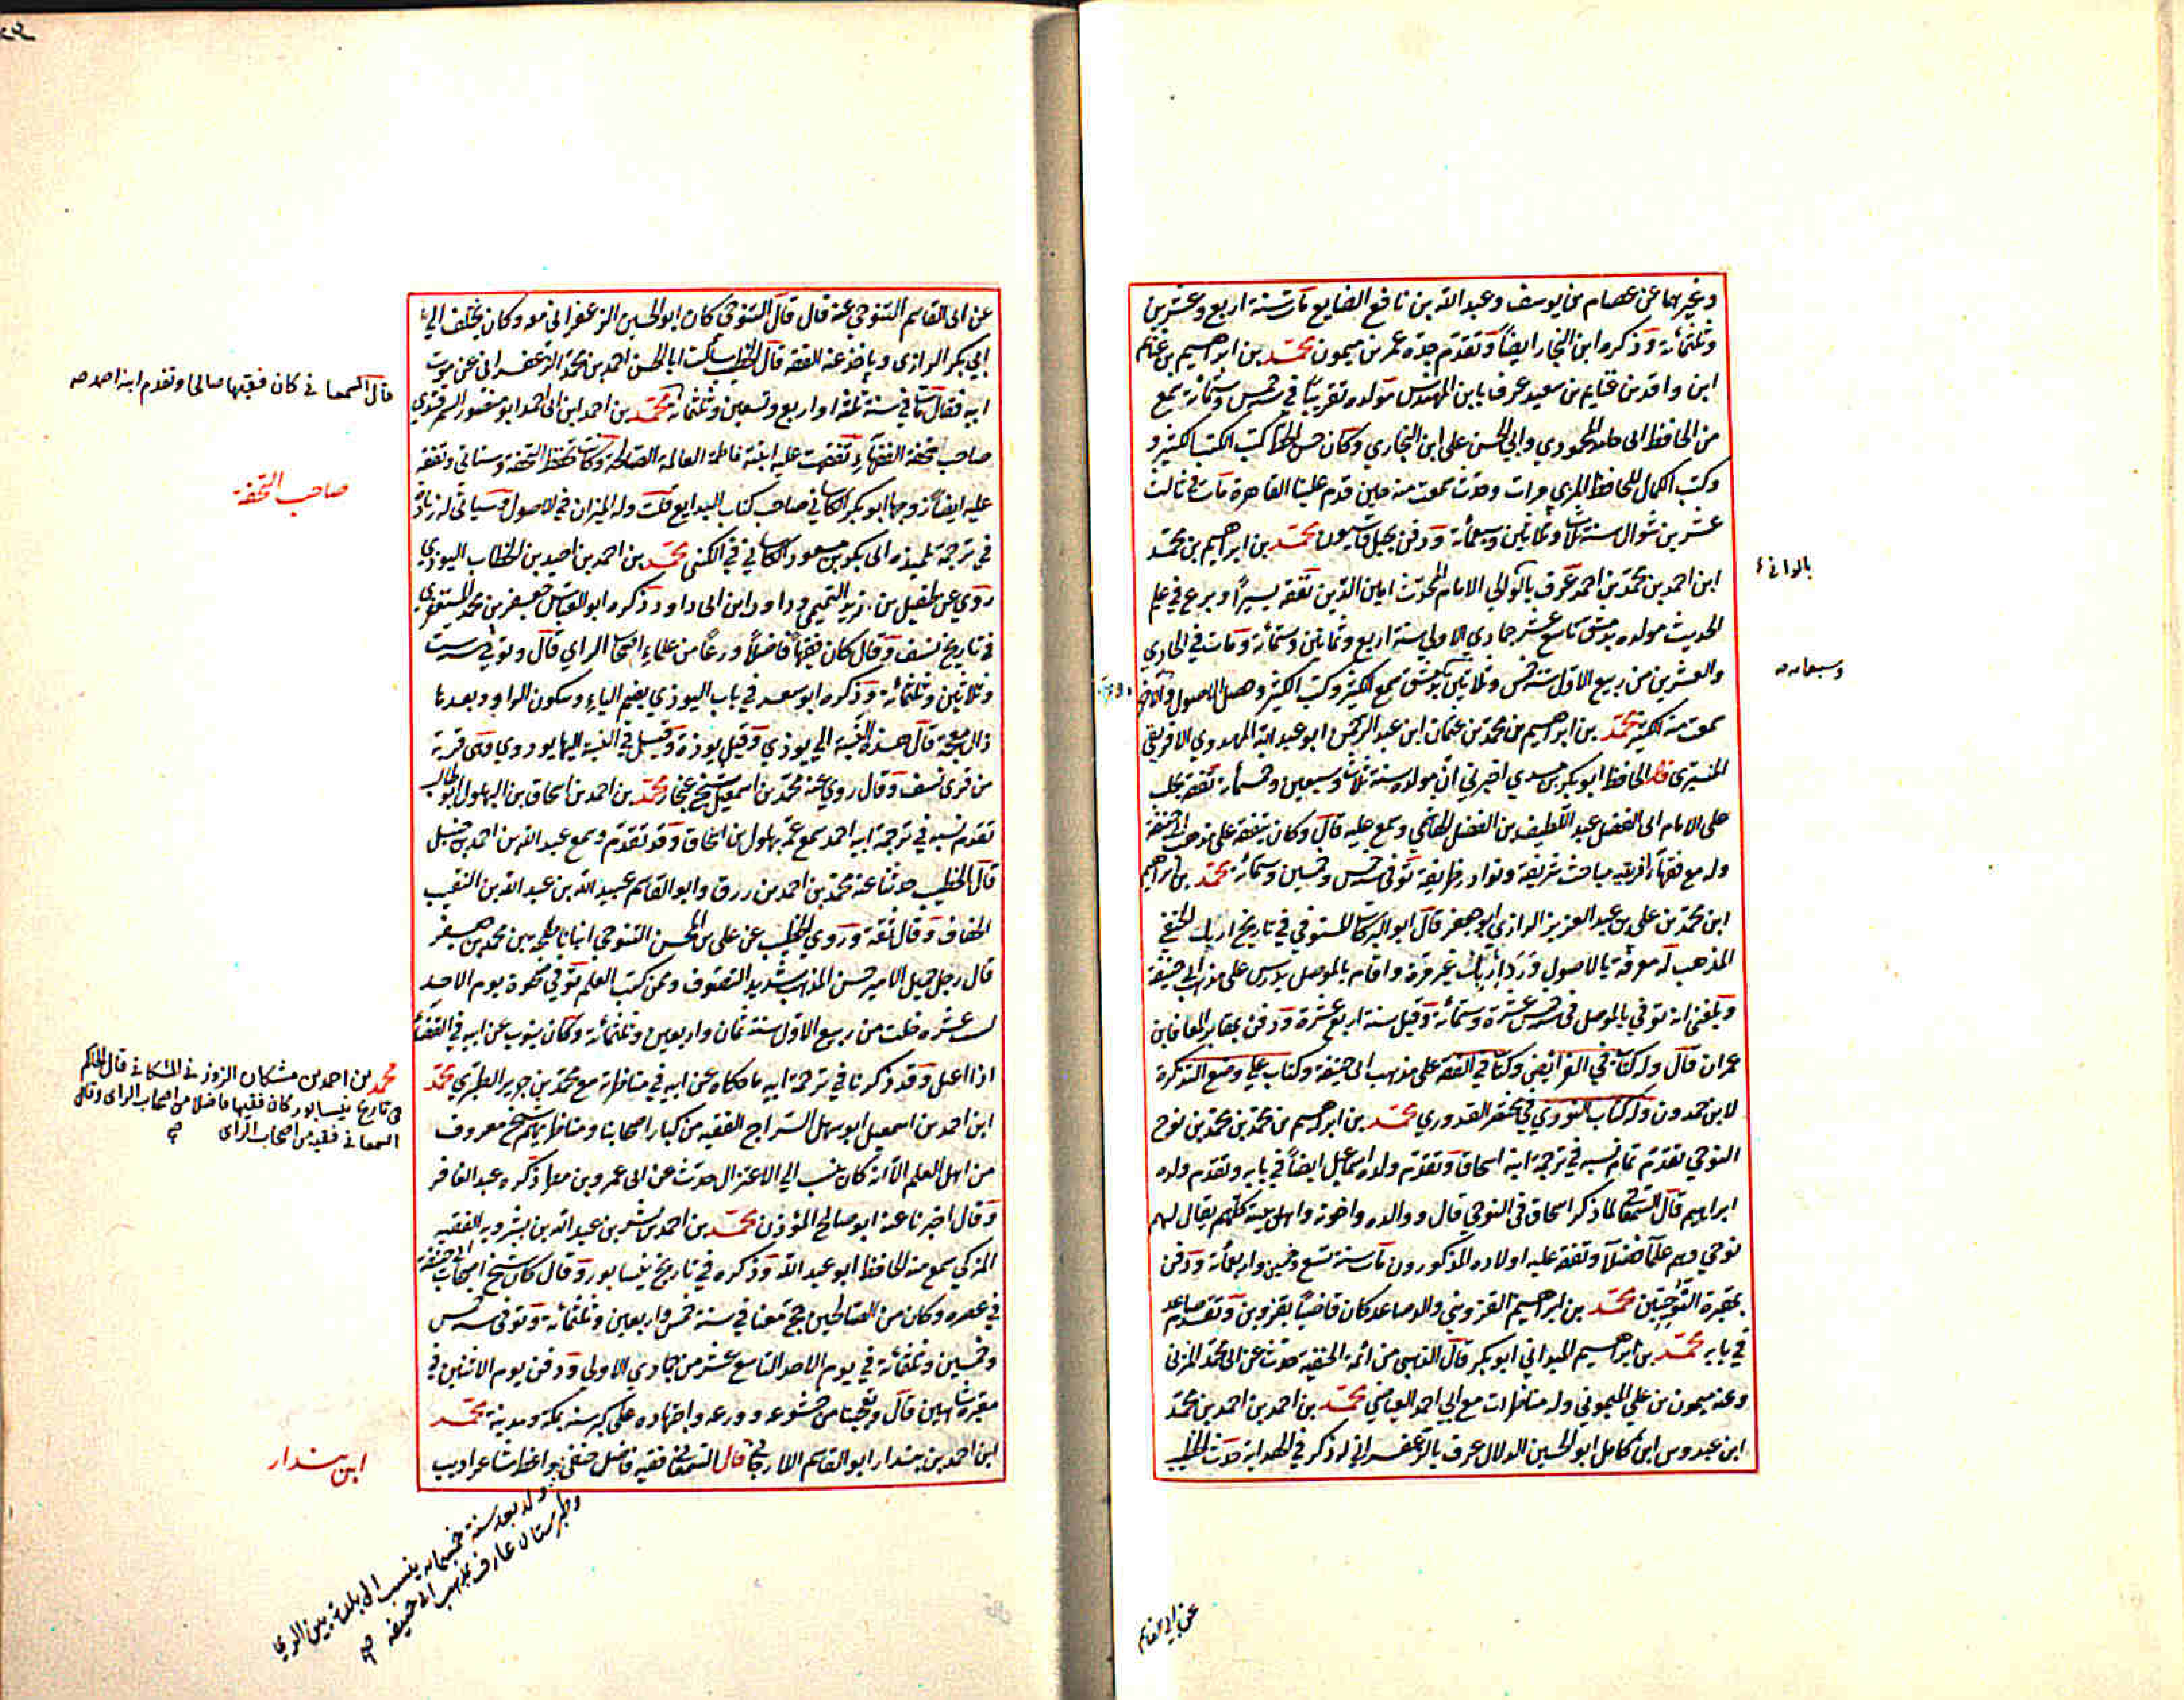 وغيرهما عن عصام بن يوسف وعبد الله بن نافع الصايغ مات سنة اربع وعشرين
وثلثمائة وذكره ابن النجار ايضاً وتقدم جده عمر بن ميمون محمد بن ابراهيم بن غنايم
ابن واقد بن غنايم بن سعيد عرف بابن المهندس مولده تقريباً في سنة خمس وستمائة سمع
من الحافظ ابي حامد المحمودي وابي الحسن علي ابن البخاري وكان حسن الخط كتب الكتب الكثير و
وكتب الكمال للحافظ المزي مرات وحدث سمعت منه حين قدم علينا القاهرة مات في ثالث
عشرين شوال سنة ثلاث وثلاثين وسبعمائة ودفن بجبل قاسيون محمد بن ابراهيم بن محمد
ابن احمد بن محمد بن احمد عرف بالوالي الامام المحدث امين الدين تفقه يسيراً وبرع في علم
الحديث مولده بدمشق تاسع عشر جمادي الاولى سنة اربع وثمانين وستمائة ومات في الحادي
والعشرين من ربيع الاول سنة خمس وثلاثين بدمشق سمع الكثير وكتب الكثير وحصل الاصول
سمعت منه الكثير محمد بن ابراهيم بن محمد بن عثمان ابن عبد الرحمن ابو عبد الله المهدوي الافريقي
قال الحافظ ابو بكر بن مسدي اخبرني ان مولده سنة ثلاث وسبعين وخمسمائة تفقه بحلب
على الامام ابي الفضل عبد اللطيف بن الفضل الهاشمي وسمع عليه قال وكان يتفقه على مذهب ابي حنيفة
وله مع فقهاء افريقية مباحث شريفة ونوادر ظريفة توفى سنة خمس وخمسين وستمائة محمد بن ابراهيم
ابن محمد بن علي بن عبد العزيز الرازي ابو جعفر قال ابو البركات المستوفي في تاريخ اربل الحنفي
المذهب له معرفة بالاصول ورد اربل غير مرة واقام بالموصل يدرس على مذهب ابي حنيفة
وبلغني انه توفي بالموصل في سنة خمس عشرة وستمائة وقيل سنة اربع عشرة ودفن بمقابر المعافا بن
عمران قال وله كتاب في الفرائض وكتاب في الفقه على مذهب ابي حنيفة وكتاب علي وضع التذكرة
لابن حمدون وله كتاب النوري في مختصر القدوري محمد بن ابراهيم بن محمد بن محمد بن نوح
النوحي تقدم تمام نسبه في ترجمة ابنه اسحاق وتقدم ولده اسماعيل ايضاً في بابه وتقدم ولده
ابراهيم قال السمعاني لما ذكر اسحاق في النوحي قال ووالده واخوته واهل بيته كلهم يقال لهم
نوحي وهم علماء فضلاء وتفقه عليه اولاده المذكورون مات سنة تسع وخمسين واربعمائة ودفن
بمقبرة النوحيين محمد بن ابراهيم القزويني والد صاعد كان قاضياً بقزوين وتقدم صاعد
في بابه محمد بن ابراهيم الميداني ابو بكر قال الذهبي من ائمة الحنفية حدث عن ابي محمد المزني
وعنه ميمون بن علي الميموني وله مناظرات مع ابي احمد العياضي محمد بن احمد بن احمد بن محمد
ابن عبدوس ابن كامل ابو الحسين الدلال عرف بالزعفراني له ذكر في الهداية حدث الخطيب
وسبعمائة صه
عن ابي القاسم
عن ابي القاسم التنوخي عنه قال قال التنوخي كان ابو الحسين الزعفراني معه وكان يختلف الي
ابي بكر الرازي وياخذ عنه الفقه قال الخطيب سألت ابا الحسن احمد بن محمد الزعفراني عن موت
ابيه فقال مات في سنة ثلث او اربع وتسعين وثلثمائة محمد بن احمد ابن ابي احمد ابو منصور السمرقندي
صاحب تحفة الفقهاء تفقهت عليه ابنته فاطمة العالمة الصالحة وكانت تحفظ التحفة وستاتي وتفقه
عليه ايضاً زوجها ابو بكر الكاساني صاحب كتاب البدايع قلت وله الميزان في الاصول وسياتي له زيادة
في ترجمة تلميذه ابي بكر بن مسعود الكاساني في الكنى محمد بن احمد بن احيد بن الخطاب اليوذي
روي عن طفيل بن زيد التميمي وداود ابن ابي داود ذكره ابو العباس جعفر بن محمد المستغفري
في تاريخ نسف وقال كان فقيهاً فاضلاً ورعاً من علماء اصحاب الراي قال وتوفي سنة ست
وثلاثين وثلثمائة وذكره ابو سعد في باب اليوذي بضم الياء وسكون الواو وبعدها
ذال معجمة قال هذه النسبة الي يوذي وقيل يوذة وقيل في النسبة اليها يودوي وهي قرية
من قرى نسف وقال روي عنه محمد بن اسمعيل شيخ غنجار محمد بن احمد بن اسحاق بن البهلول ابو طالب
تقدم نسبه في ترجمة ابيه احمد سمع عمه بهلول بن اسحاق وقد تقدم وسمع عبد الله بن احمد بن حنبل
قال الخطيب حدثنا عنه محمد بن احمد بن رزق وابو القاسم عبيد الله بن عبد الله بن النقيب
الخفاف وقال ثقة وروي الخطيب عن علي بن المحسن التنوخي انبانا طلحة بن محمد بن جعفر
قال رجل جميل الامر حسن المذهب شديد التصوف وممن كتب العلم توفي فجوة يوم الاحد
لست عشرة خلت من ربيع الاول سنة ثمان واربعين وثلثمائة وكان ينوب عن ابيه في القضاء
اذا اعتل وقد ذكرنا في ترجمة ابيه ما حكاه عن ابيه في مناظرته مع محمد بن جرير الطبري محمد
ابن احمد بن اسمعيل ابو سهل السراج الفقيه من كبار اصحابنا ومناظريهم شيخ معروف
من اهل العلم الا انه كان ينسب الي الاعتزال حدث عن ابي عمرو بن مطر ذكره عبد الغافر
وقال اخبرنا عنه ابو صالح المؤذن محمد بن احمد بن بشر بن عبد الله بن بشرويه الفقيه
المزكي سمع منه الحافظ ابو عبد الله وذكره في تاريخ نيسابور وقال كان شيخ اصحاب ابي حنيفة
في عصره وكان من الصالحين حج معنا في سنة خمس واربعين وثلثمائة وتوفى سنة خمس
وخمسين وثلثمائة في يوم الاحد التاسع عشر من جمادى الاولى ودفن يوم الاثنين في
مقبرة شاهين قال وتعجبنا من خشوعه وورعه واجتهاده على كبر سنه بمكة ومدينة محمد
ابن احمد بن بندار ابو القاسم اللارجي قال السمعاني فقيه فاضل حنفي واعظ شاعر اديب
قال السمعاني كان فقيها صالحا وتقدم ابنه احمد صه
صاحب التحفة
محمد بن احمد بن مشكان الزوزني المشكاني قال الحاكم
في تاريخ نيسابور كان فقيها فاضلا من اصحاب الراى وقال
السمعاني فقيه من اصحاب الراى صه
ابن بندار
ولد بعد سنة خمسمائة ينسب الى بلدة بين الري
وطبرستان عارف بمذهب ابي حنيفة صه